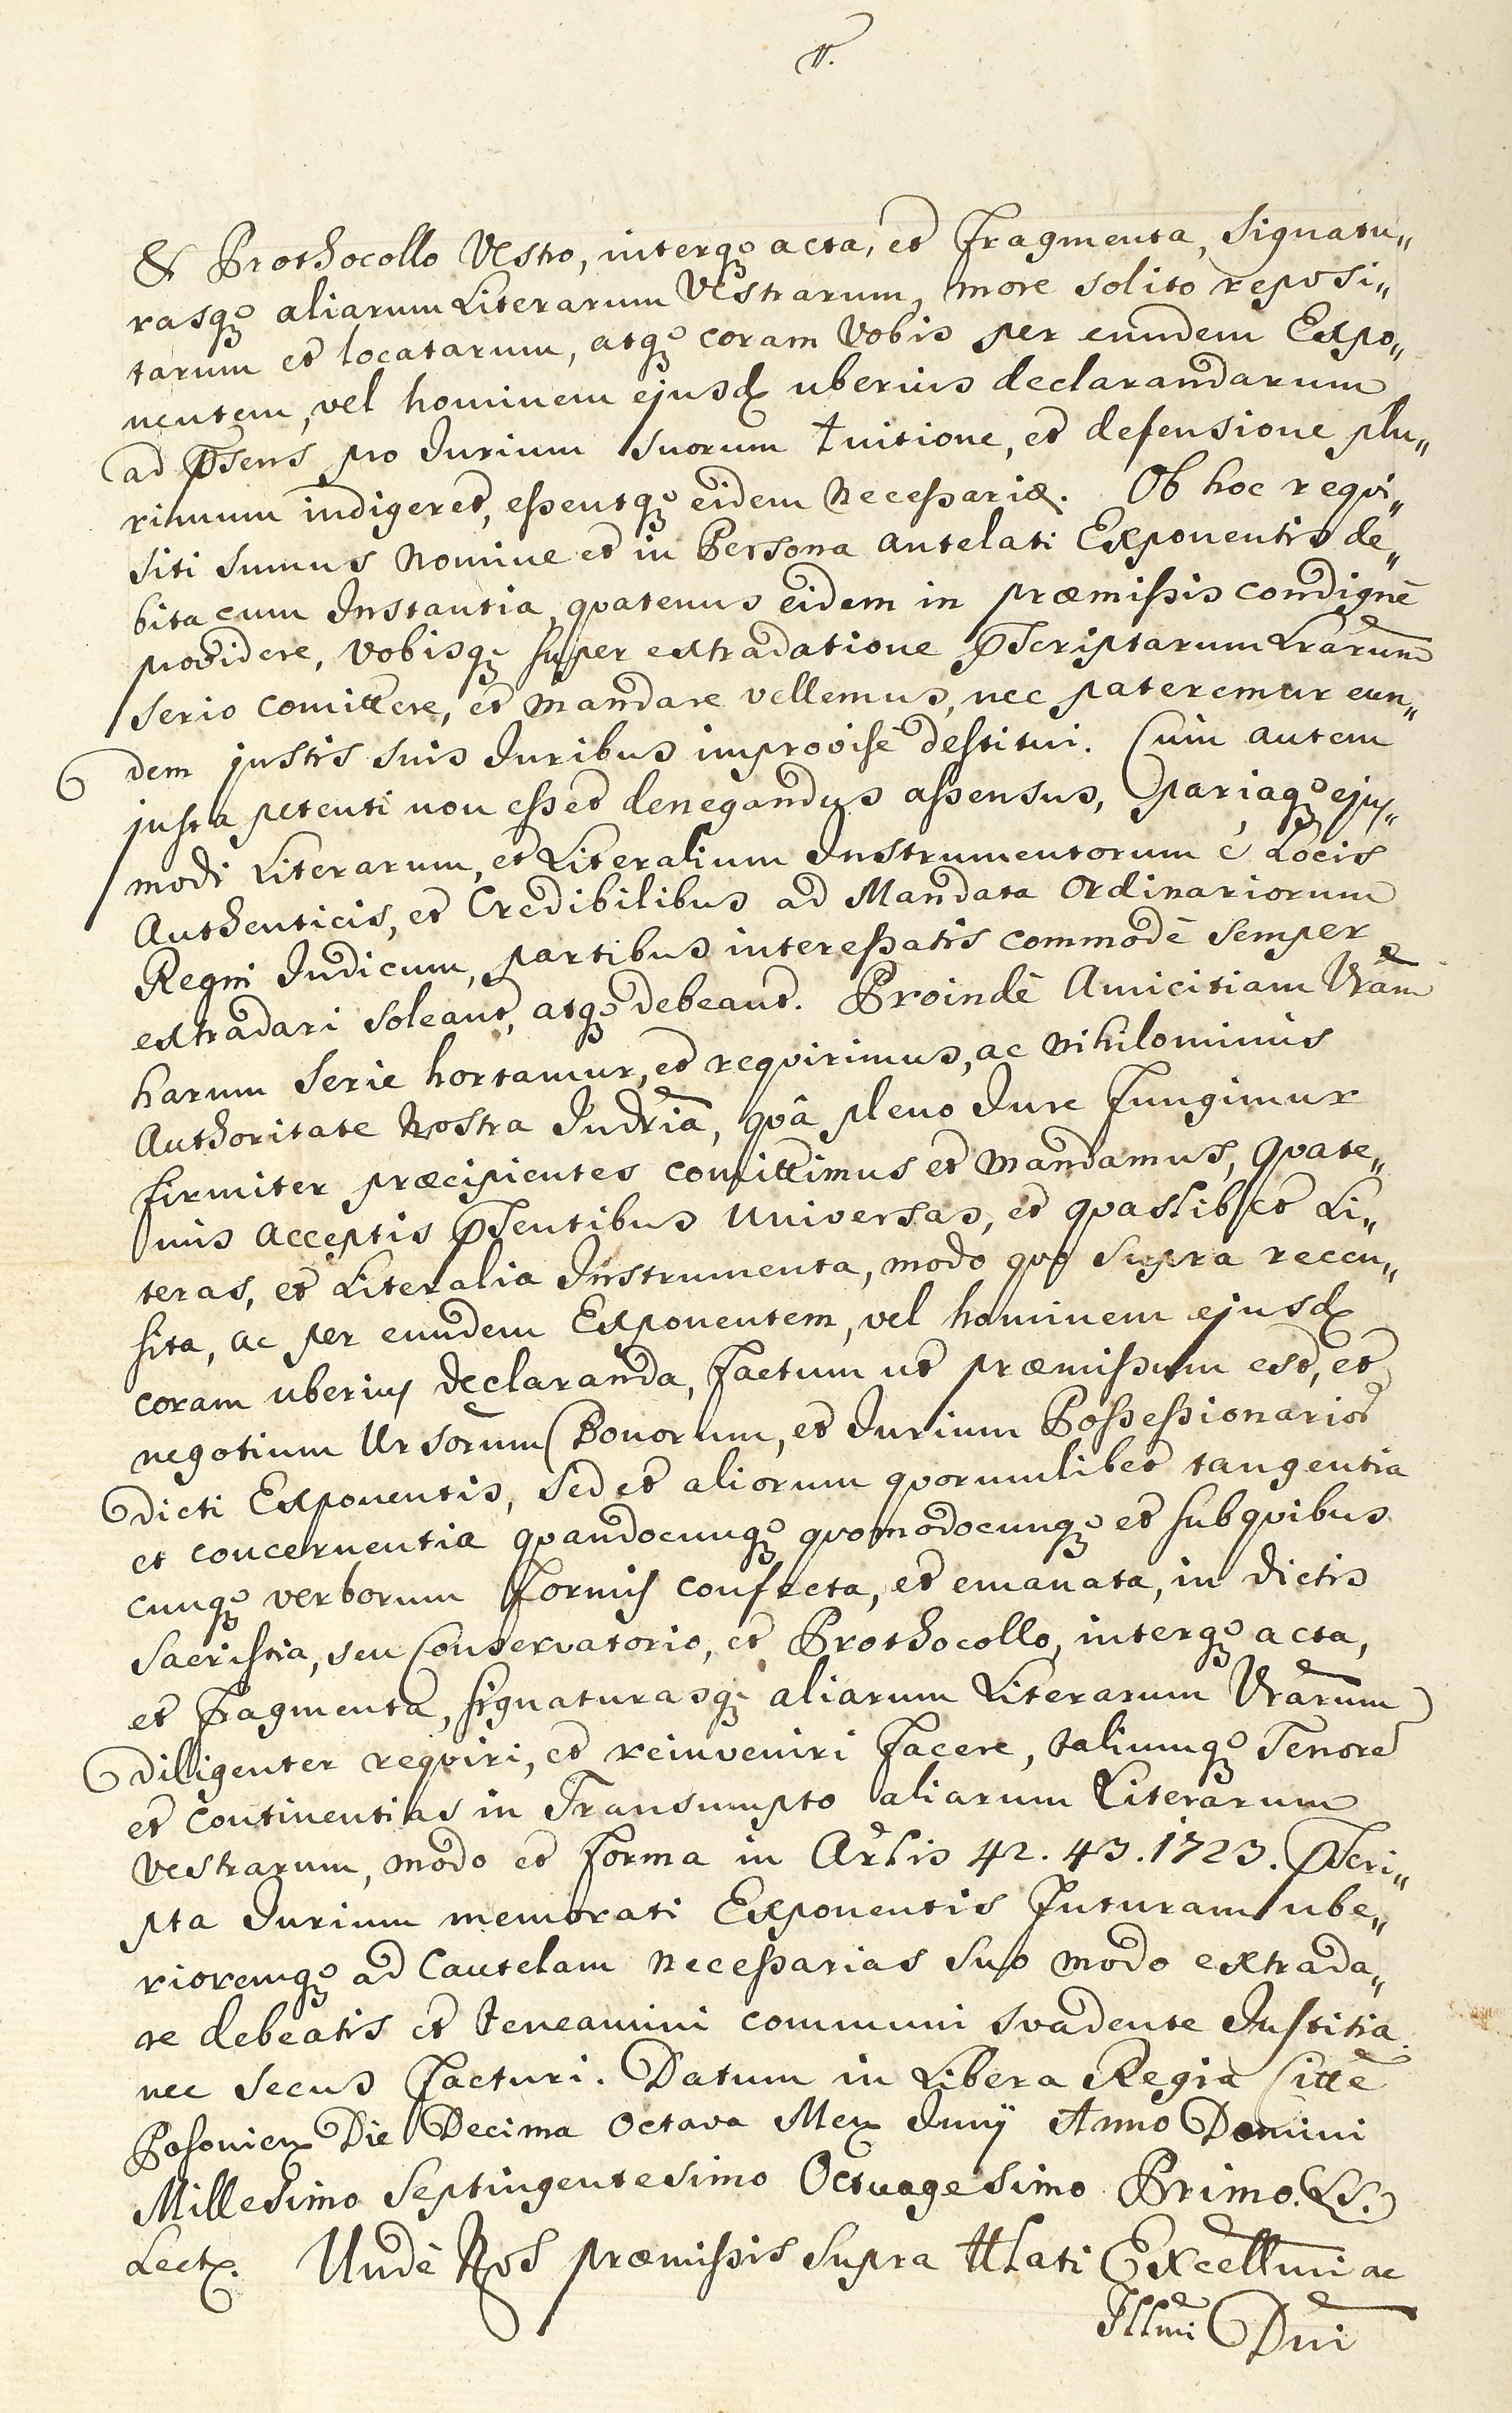 & Prothocollo Vestro, interq3 acta, et Fragmenta, Signatu„
rasq3 aliarum Literarum Vestrarum, more solito reposi„
tarum et locatarum, atq3 coram Vobis per eundem Expo„
nentem, vel hominem ejusd uberius declarandarum
ad p̄sens pro Jurium Suorum tuitione, et defensione plu„
rimum indigeret, essentq3 eidem Necessariæ. Ob hoc reqvi„
siti sumus Nomine et in Persona antelati Exponentis de„
bita cum Instantia, qvatenus eidem in præmissis condignè
providere, Vobisq3 super extradatione p̄scriptarum Lrārum
Serio comittere, et Mandare vellemus, nec pateremur eun„
dem justis suis Juribus improvisè destitui. Cum autem
justa petenti non esset denegandus assensus, pariaq3 ejus„
modi Literarum, et Literalium Instrumentorum è Locis
Authenticis, et Credibilibus ad Mandata Ordinariorum
Regni Judicum, partibus interessatis commodè semper
extradari soleant, atq3 debeant. Proindè Amicitiam Vrām
harum Serie hortamur, et reqvirimus, ac Nihilominus
Authoritate Nostra Judriā, qvâ pleno Jure Fungimur
firmiter præcipientes comittimus et Mandamus, qvate„
nus acceptis p̄sentibus Universas, et qvaslibet Li„
teras, et Literalia Instrumenta, modo qvo Supra recen„
sita, ac per eundem Exponentem, vel hominem ejusd
coram uberius declaranda, Factum ut præmissum est, et
negotium Ursorum Bonorum, et Jurium Possessionario
dicti Exponentis, Sed et aliorum qvorumlibet tangentia
et concernentia qvandocunq3 qvomodocunq3 et sub qvibus
cunq3 verborum Formis confecta, et emanata, in dictis
Sacristia, seu Conservatorio, et Prothocollo, interq3 acta,
et Fragmenta, signaturasq3 aliarum Literarum Vrārum
diligenter reqviri, et reinveniri Facere, taliumq3 Tenore
et continentias in Transumpto aliarum Literarum
Vestrarum, modo et Forma in Arlis 42. 43. 1723. p̄scri„
pta Jurium memorati Exponentis Futuram ube„
rioremq3 ad Cautelam Necessarias Suo modo extrada„
re debeatis et teneamini communi svadente Justitia.
nec secus Facturi. Datum in Libera Regia Citte
Posonien Die Decima Octava Men Junÿ Anno Domini
Millesimo Septingentesimo Octuagesimo Primo. (LS.)
Lect. Undè Nos præmissis Supra Tllati Excellmi ac
Illmi Dni